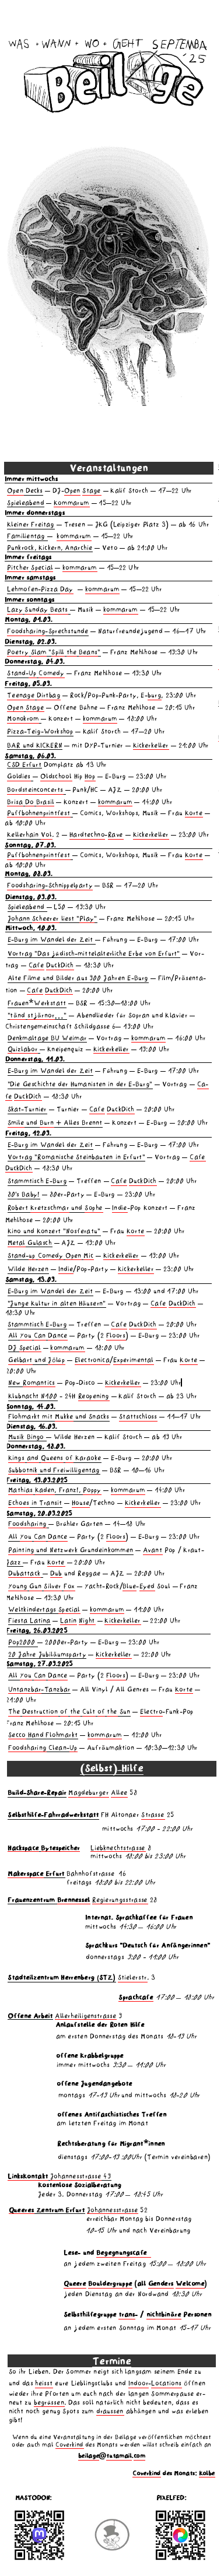 WAS + WANN + WO + GEHT SEPTEMBA '25
Beilage
Veranstaltungen
Immer mittwochs
Open Decks — DJ-Open Stage — Kalif Storch — 17—22 Uhr
Spieleabend — kommarum — 15—22 Uhr
Immer donnerstags
Kleiner Freitag — Tresen — JKG (Leipziger Platz 3) — ab 16 Uhr
Familientag — kommarum — 15—22 Uhr
Punkrock, Kickern, Anarchie — Veto — ab 21:00 Uhr
Immer freitags
Pitcher Special — kommarum — 15—22 Uhr
Immer samstags
Lehmofen-Pizza Day — kommarum — 15—22 Uhr
Immer sonntags
Lazy Sunday Beats — Musik — kommarum — 15—22 Uhr
Montag, 01.09.
Foodsharing-Sprechstunde — Naturfreundejugend — 16—17 Uhr
Dienstag, 02.09.
Poetry Slam "Spill the Beans" — Franz Mehlhose — 19:30 Uhr
Donnerstag, 04.09.
Stand-Up Comedy — Franz Mehlhose — 19:30 Uhr
Freitag, 05.09.
Teenage Dirtbag — Rock/Pop-Punk-Party, E-burg, 23:00 Uhr
Open Stage — Offene Bühne — Franz Mehlhose — 20:15 Uhr
Monokorn — Konzert — kommarum — 18:00 Uhr
Pizza-Teig-Workshop — Kalif Storch — 17—20 Uhr
BAR und KICKERN — mit DYP-Turnier — Kickerkeller — 21:00 Uhr
Samstag, 06.09.
CSD Erfurt Domplatz ab 13 Uhr
Goldies — Oldschool Hip Hop — E-Burg — 23:00 Uhr
Bordsteinconcerts — Punk/HC — AJZ — 20:00 Uhr
Brisa Do Brasil — Konzert — kommarum — 19:00 Uhr
Puffbohnenprintfest — Comics, Workshops, Musik — Frau Korte —
ab 10:00 Uhr
Kellerhain Vol. 2 — Hardtechno-Rave — Kickerkeller — 23:00 Uhr
Sonntag, 07.09.
Puffbohnenprintfest — Comics, Workshops, Musik — Frau Korte —
ab 10:00 Uhr
Montag, 08.09.
Foodsharing-Schnippelparty — BSR — 17—20 Uhr
Dienstag, 09.09.
Spieleabend — L50 — 19:30 Uhr
Johann Scheerer liest "Play" — Franz Mehlhose — 20:15 Uhr
Mittwoch, 10.09.
E-Burg im Wandel der Zeit — Führung — E-Burg — 17:00 Uhr
Vortrag "Das jüdisch-mittelalterliche Erbe von Erfurt" — Vor-
trag — Cafe DuckDich — 18:30 Uhr
Alte Filme und Bilder aus 300 Jahren E-Burg — Film/Präsenta-
tion — Cafe DuckDich — 20:00 Uhr
Frauen*werkstatt — BSR — 15:30—18:00 Uhr
"tänd stjärnor..." — Abendlieder für Sopran und Klavier —
Christengemeinschaft Schildgasse 6— 19:00 Uhr
Denkmaltage BU Weimar — Vortrag — kommarum — 16:00 Uhr
Quizlabor — Kneipenquiz — Kickerkeller — 19:00 Uhr
Donnerstag, 11.09.
E-Burg im Wandel der Zeit — Führung — E-Burg — 17:00 Uhr
"Die Geschichte der Humanisten in der E-Burg" — Vortrag — Ca-
fe DuckDich — 18:30 Uhr
Skat-Turnier — Turnier — Cafe DuckDich — 20:00 Uhr
Smile and Burn + Alles Brennt — Konzert — E-Burg — 20:00 Uhr
Freitag, 12.09.
E-Burg im Wandel der Zeit — Führung — E-Burg — 17:00 Uhr
Vortrag "Romanische Steinbauten in Erfurt" — Vortrag — Cafe
DuckDich — 18:30 Uhr
Stammtisch E-Burg — Treffen — Cafe DuckDich — 20:00 Uhr
80's Baby! — 80er-Party — E-Burg — 23:00 Uhr
Robert Kretzschmar und Sophe — Indie-Pop Konzert — Franz
Mehlhose — 20:00 Uhr
Kino und Konzert "Nosferatu" — Frau Korte — 20:00 Uhr
Metal Gulasch — AJZ — 19:00 Uhr
Stand-up Comedy Open Mic — Kickerkeller — 19:00 Uhr
Wilde Herzen — Indie/Pop-Party — Kickerkeller — 23:00 Uhr
Samstag, 13.09.
E-Burg im Wandel der Zeit — E-Burg — 13:00 und 17:00 Uhr
"Junge Kultur in alten Häusern" — Vortrag — Cafe DuckDich —
18:30 Uhr
Stammtisch E-Burg — Treffen — Cafe DuckDich — 20:00 Uhr
All You Can Dance — Party (2 Floors) — E-Burg — 23:00 Uhr
DJ Special — kommarum — 18:00 Uhr
Gelbart und Jolao — Electronica/Experimental — Frau Korte —
20:00 Uhr
New Romantics — Pop-Disco — Kickerkeller — 23:00 Uhr
Klubnacht N400 — 24H Reopening — Kalif Storch — ab 23 Uhr
Sonntag, 14.09.
Flohmarkt mit Mukke und Snacks — Stattschloss — 11—17 Uhr
Dienstag, 16.09.
Musik Bingo — Wilde Herzen — Kalif Storch — ab 19 Uhr
Donnerstag, 18.09.
Kings and Queens of Karaoke — E-Burg — 20:00 Uhr
Subbotnik und Freiwilligentag — BSR — 10—16 Uhr
Freitag, 19.09.2025
Mathias Kaden, Franz!, Poppy — kommarum — 19:00 Uhr
Echoes in Transit — House/Techno — Kickerkeller — 23:00 Uhr
Samstag, 20.09.2025
Foodsharing — Brühler Garten — 14—18 Uhr
All You Can Dance — Party (2 Floors) — E-Burg — 23:00 Uhr
Painting und Netzwerk Grundeinkommen — Avant Pop / Kraut-
Jazz — Frau Korte — 20:00 Uhr
Dubattack — Dub und Reggae — AJZ — 20:00 Uhr
Young Gun Silver Fox — Yacht-Rock/Blue-Eyed Soul — Franz
Mehlhose — 19:30 Uhr
Weltkindertags Special — kommarum — 14:00 Uhr
Fiesta Latina — Latin Night — Kickerkeller — 22:00 Uhr
Freitag, 26.09.2025
Pop2000 — 2000er-Party — E-Burg — 23:00 Uhr
20 Jahre Jubiläumsparty — Kickerkeller — 22:00 Uhr
Samstag, 27.09.2025
All You Can Dance — Party (2 Floors) — E-Burg — 23:00 Uhr
Untanzbar-Tanzbar — All Vinyl / All Genres — Frau Korte —
21:00 Uhr
The Destruction of the Cult of the Sun — Electro-Funk-Pop
Franz Mehlhose — 20:15 Uhr
Secco Hand Flohmarkt — kommarum — 12:00 Uhr
Foodsharing Clean-Up — Aufräumaktion — 10:30—12:30 Uhr
(Selbst)-Hilfe
Build-Share-Repair Magdeburger Allee 58
Selbsthilfe-Fahrradwerkstatt FH Altonaer Strasse 25
mittwochs 17:00 - 22:00 Uhr
Hackspace Bytespeicher Liebknechtstrasse 8
mittwochs 18:00 bis 23:00 Uhr
Makerspace Erfurt Bahnhofstrasse 16
freitags 18:00 bis 22:00 Uhr
Frauenzentrum Brennessel Regierungsstrasse 28
Internat. Sprachkaffee für Frauen
mittwochs 14:30 — 16:00 Uhr
Sprachkurs "Deutsch für Anfängerinnen"
donnerstags 9:00 - 11:00 Uhr
Stadtteilzentrum Herrenberg (STZ) Stielerstr. 3
Sprachcafe 17:00 — 18:00 Uhr
Offene Arbeit Allerheiligenstrasse 9
Anlaufstelle der Roten Hilfe
am ersten Donnerstag des Monats 18-19 Uhr
offene Krabbelgruppe
immer mittwochs 9:30 — 11:00 Uhr
offene Jugendangebote
montags 17-19 Uhr und mittwochs 18-20 Uhr
offenes Antifaschistisches Treffen
am letzten Freitag im Monat
Rechtsberatung für Migrant*innen
dienstags 17:00-19:00Uhr (Termin vereinbaren)
Linkskontakt Johannesstrasse 49
Kostenlose Sozialberatung
Jeder 3. Donnerstag 17:00 — 18:45 Uhr
Queeres Zentrum Erfurt Johannesstrasse 52
erreichbar Montag bis Donnerstag
10-15 Uhr und nach Vereinbarung
Lese- und Begegnungscafe
an jedem zweiten Freitag 15:00 — 18:00 Uhr
Queere Bouldergruppe (all Genders Welcome)
jeden Dienstag an der Nordwand 18:30 Uhr
Selbsthilfegruppe trans- / nichtbinäre Personen
an jedem ersten Sonntag im Monat 15-17 Uhr
Termine
So ihr Lieben. Der Sommer neigt sich langsam seinem Ende zu
und das heisst eure Lieblingsclubs und Indoor-Locations öffnen
wieder ihre Pforten um euch nach der langen Sommerpause er-
neut zu begrüssen. Das soll natürlich nicht bedeuten, dass es
nicht noch genug Spots zum draussen abhängen und was erleben
gibt!
Wenn du eine Veranstaltung in der Beilage veröffentlichen möchtest
oder auch mal Coverkind des Monats werden willst schreib einfach an
beilage@tutamail.com
Coverkind des Monats: kolbe
MASTODON:
PIXELFED: